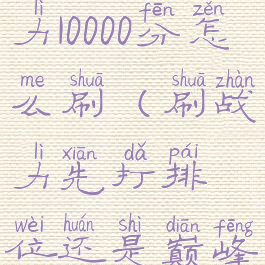 lì fēn zěn
力10000分怎
me shuā shuā zhàn
么刷(刷战
lì xiān dǎ pái
力先打排
wèi huán shì diān fēng
位还是巅峰